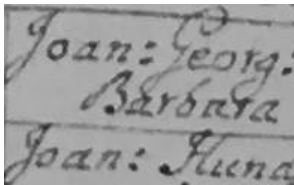 Joan: Georg:
Barbara
Joan: